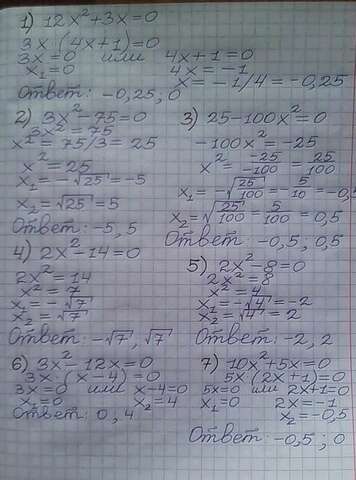 1) 12x²+3x=0
3x (4x+1)=0
3x=0 или 4x+1=0
x₁=0 4x=-1
x=-1/4=-0,25
Ответ: -0,25; 0
2) 3x²-75=0
3x²=75
x²=75/3=25
x²=25
x₁=-√25=-5
x₁=√25=5
Ответ: -5, 5
3) 25-100x²=0
-100x²=-25
x²=-25/-100=25/100
x₁=-√25/100=-5/10=-0,5
x₂=√25/100=5/100=0,5
Ответ: -0,5, 0,5
4) 2x²-14=0
2x²=14
x²=7
x₁=-√7
x₂=√7
Ответ: -√7, √7
5) 2x²-8=0
2x²=8
x²=4
x₁=-√4=-2
x₂=√4=2
Ответ: -2, 2
6) 3x²-12x=0
3x (x-4)=0
3x=0 или x-4=0
x₁=0 x₂=4
Ответ: 0, 4
7) 10x²+5x=0
5x (2x+1)=0
5x=0 или 2x+1=0
x₁=0 2x=-1
x₂=-0,5
Ответ: -0,5; 0